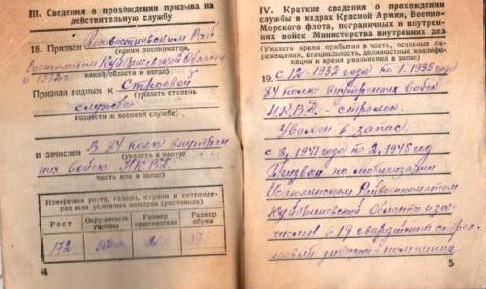 III. Сведения о прохождении призыва на
действительную службу
18. Призван
(каким военкоматом,
Куйбышевской Области
какой области и когда)
Признан годным к Строевой
(указать степень
службе
годности к военной службе)
и зачислен В 84 полк внутрен
(указать в какую
них войск НКВД
часть или в запас)
Измерения роста, головы, ступни в сантимет-
рах или условных номерах (ростовках)
Рост
Окружность
головы
Размер
противогаза
Размер
обуви
172
4
IV. Краткие сведения о прохождении
службы в кадрах Красной Армии, Военно-
Морского флота, пограничных и внутрен-
них войск Министерства внутренних дел
(Указать время прибытия в часть, основные пере-
мещения, специальность, должностные квалифи-
кации и время увольнения в запас)
19. с 12. 1932 года по 1. 1935 года
84 полк внутренних войск
Н.К.В.Д. - стрелок.
Уволен в запас
с 8, 1941 года по 2, 1945 год
Призван по мобилизации
Райвоенкоматом
Куйбышевской Области и за-
числен в 19 гвардейский стрел-
5